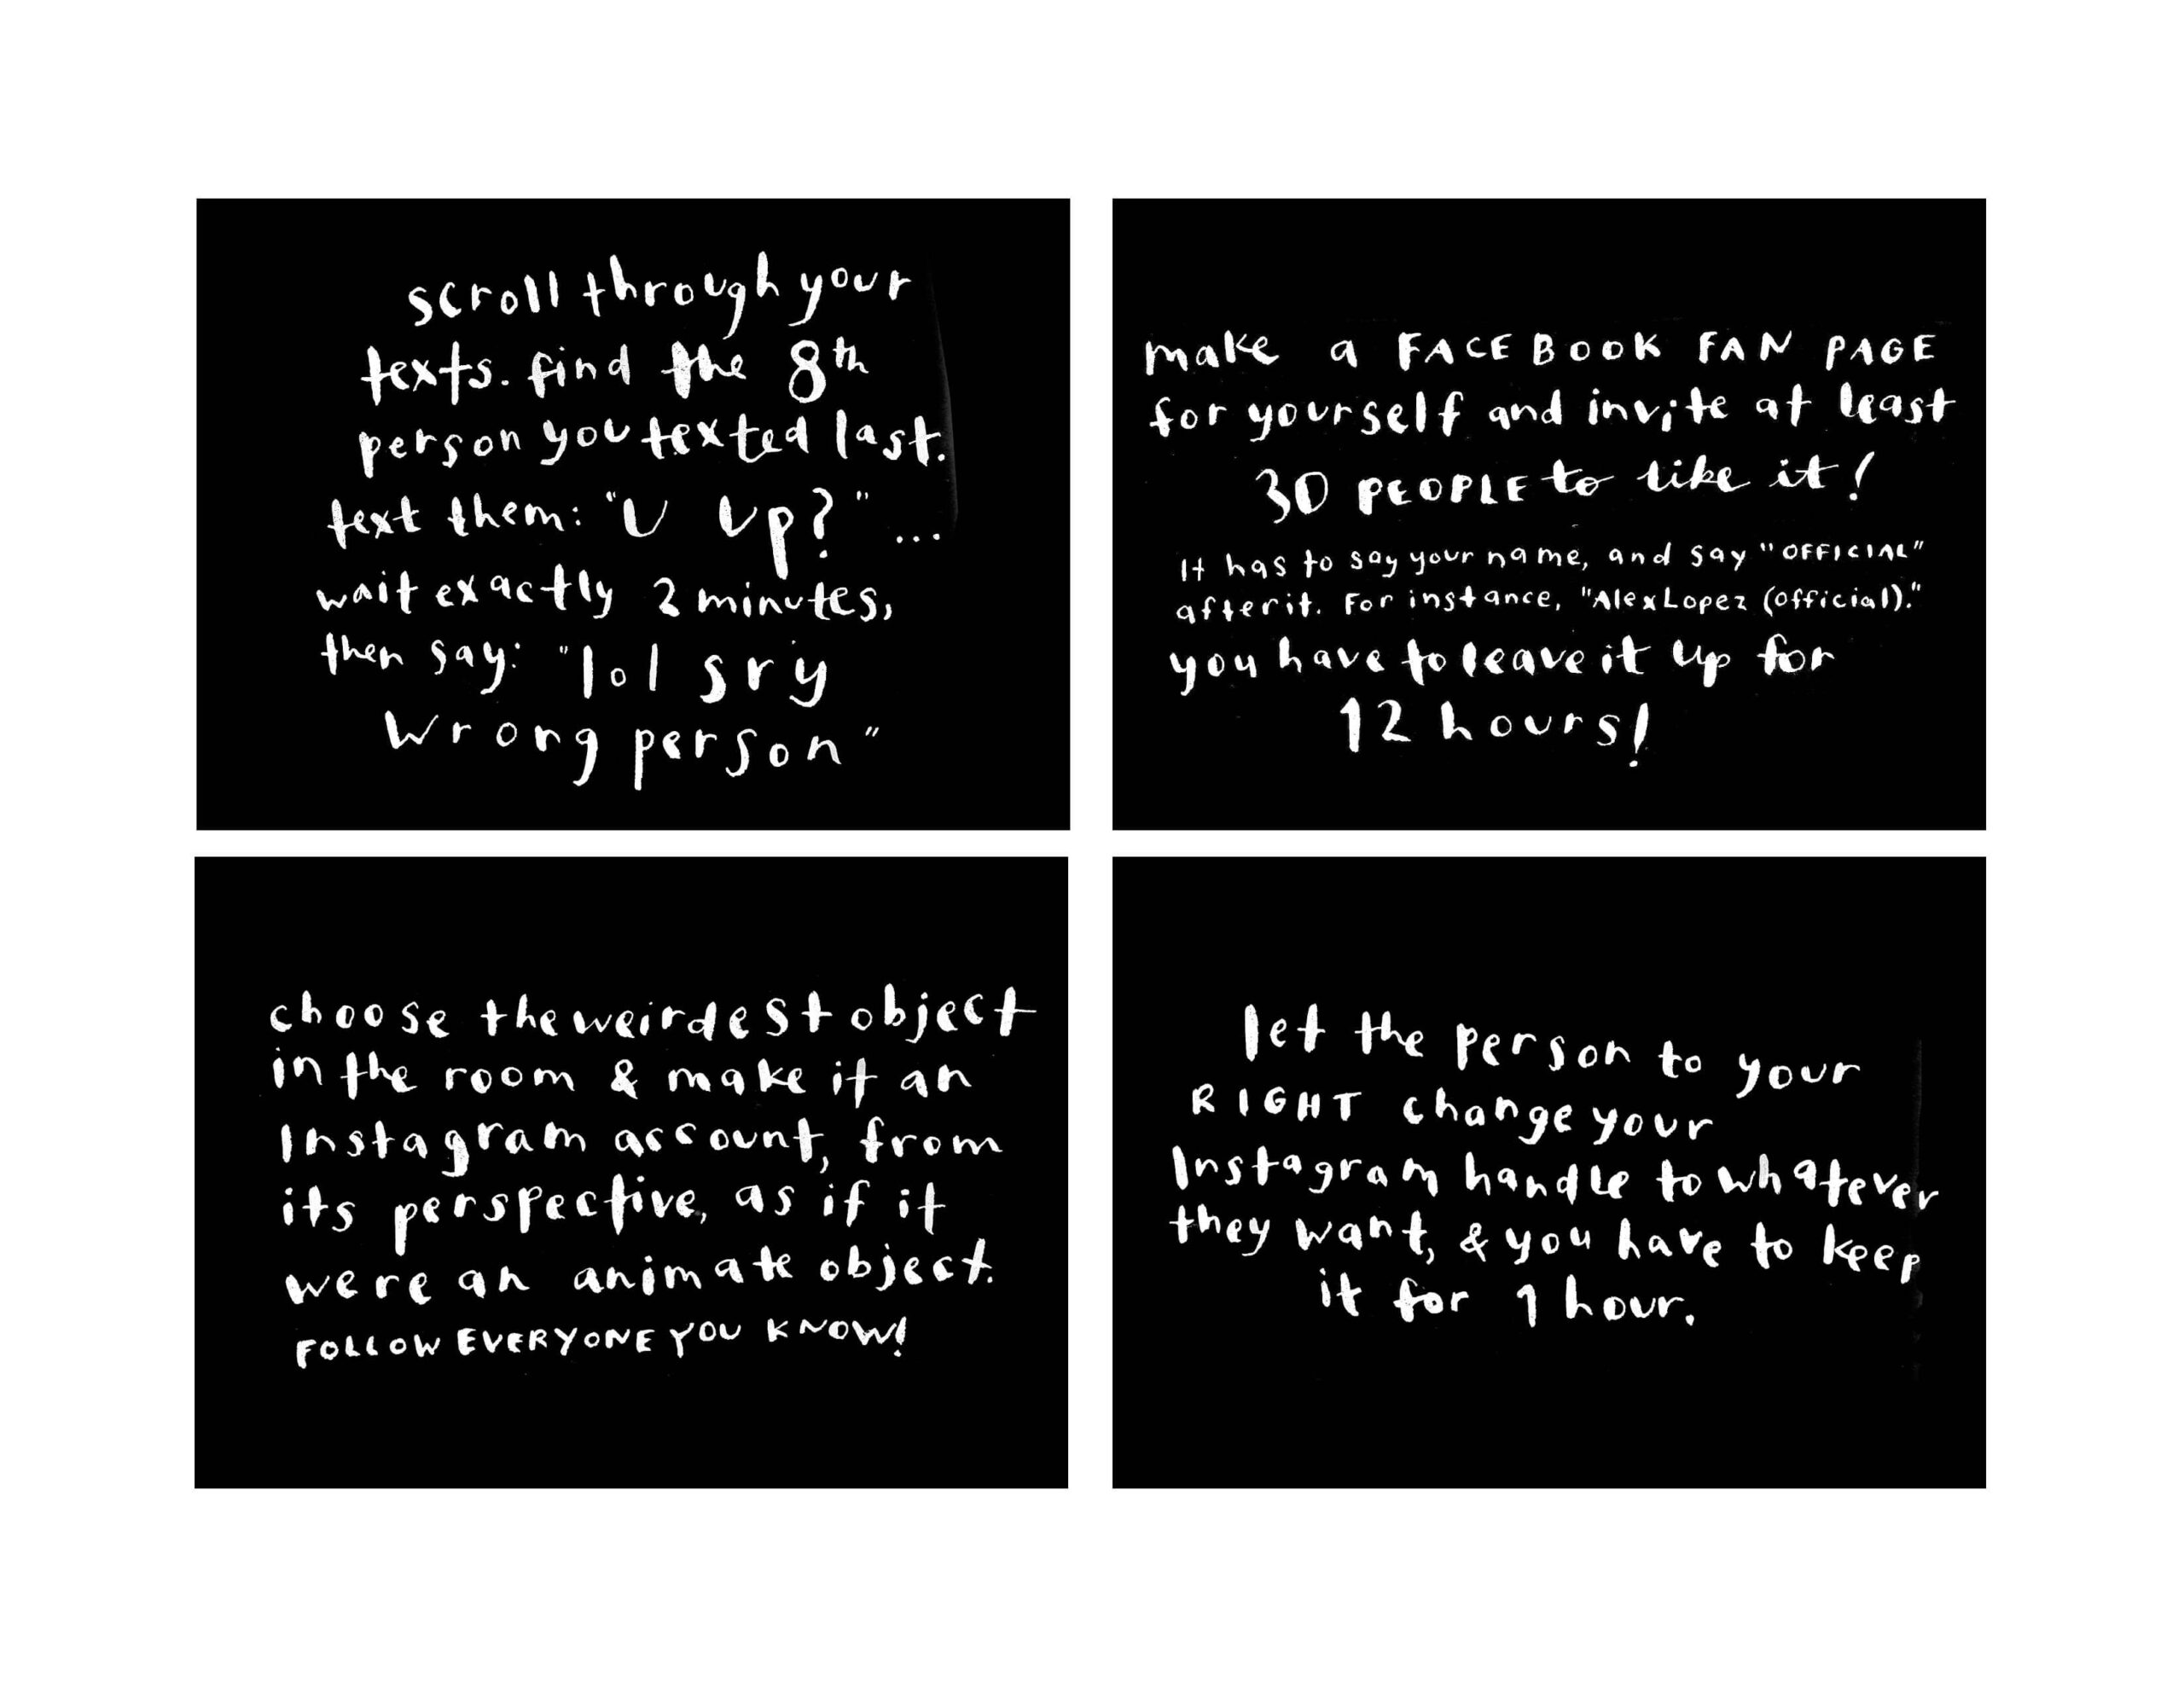 scroll through your
texts. find the 8th
person you texted last.
text them: "U Up?" ...
wait exactly 2 minutes,
then say: "lol sry
wrong person"
make a FACEBOOK FAN PAGE
for yourself and invite at least
30 PEOPLE to like it!
It has to say your name, and say "OFFICIAL"
after it. For instance, "Alex Lopez (official)."
you have to leave it up for
12 hours!
choose the weirdest object
in the room & make it an
Instagram account, from
its perspective, as if it
were an animate object.
FOLLOW EVERYONE YOU KNOW!
let the person to your
RIGHT change your
Instagram handle to whatever
they want, & you have to keep
it for 1 hour.